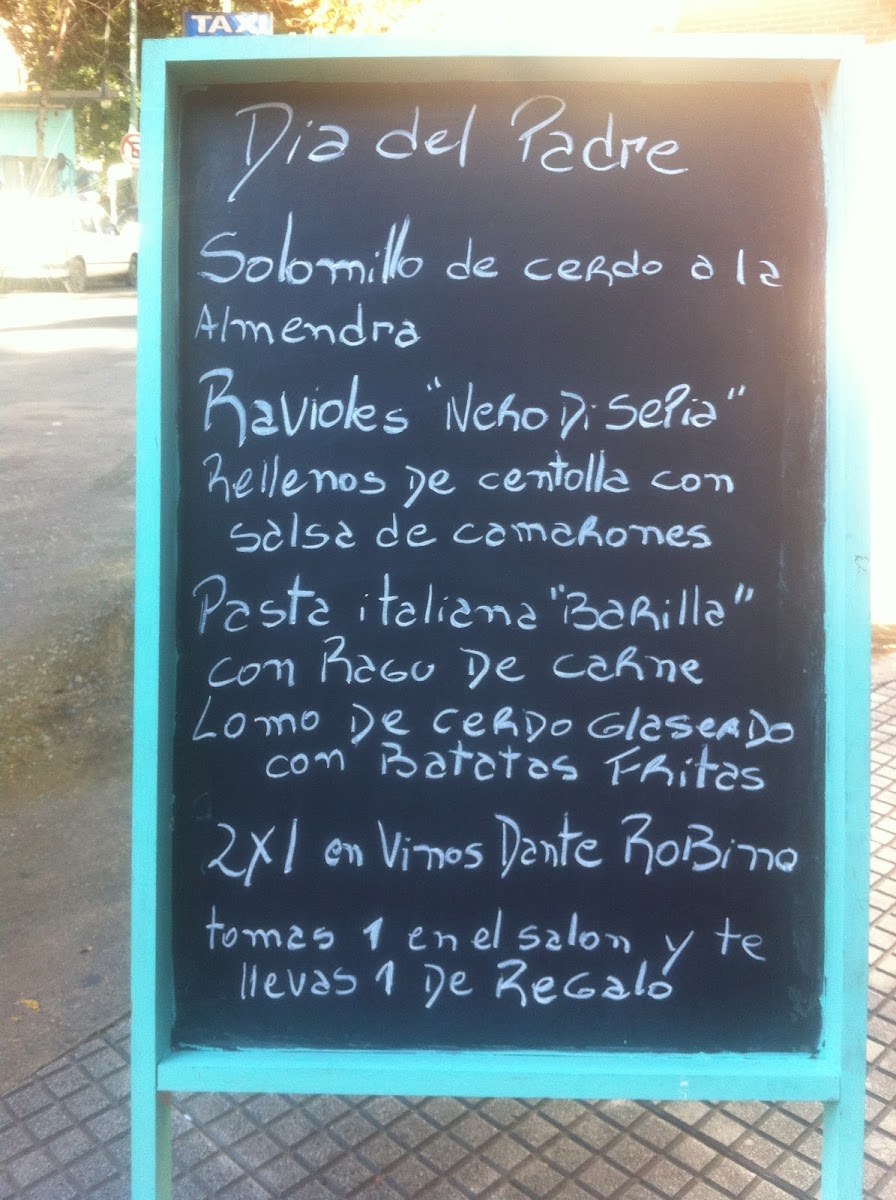 TAXI
Dia del Padre
Solomillo de cerdo a la
Almendra
Ravioles "Nero Di Sepia"
Rellenos De centolla con
salsa de camarones
Pasta italiana "Barilla"
con Ragu De carne
Lomo De cerdo Glaseado
con Batatas Fritas
2X1 en Vinos Dante RoBino
tomas 1 en el salon y te
llevas 1 De Regalo